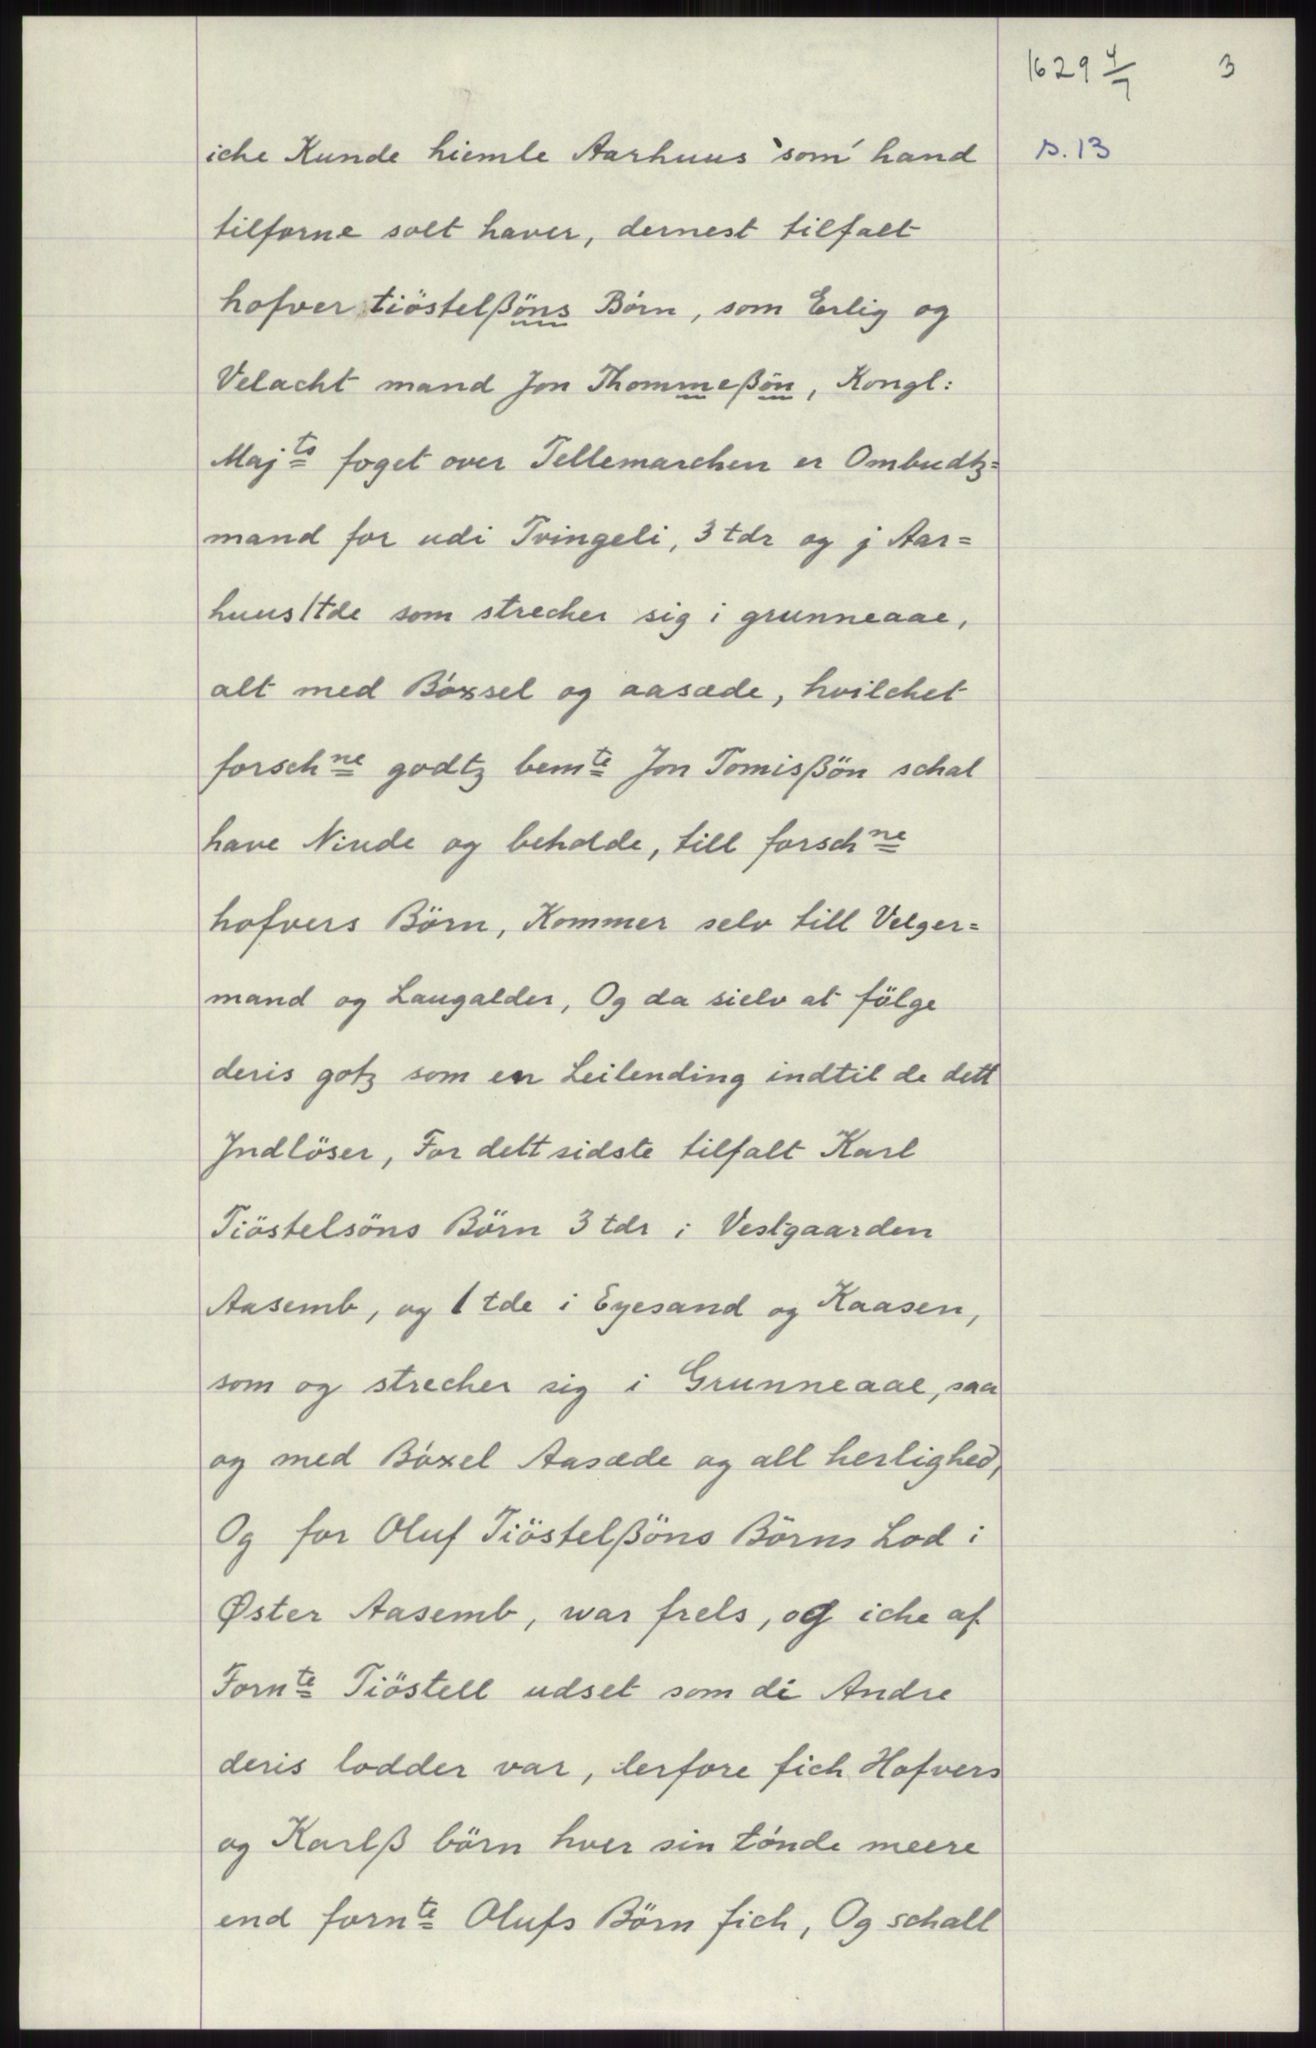 1629 4/7 3
iche Kunde hiemle Aarhuus `som´ hand
s. 13
tilforne solt haver, dernest tilfalt
hofver tiöstelßöns Börn, som Erlig og
Velacht mand Jon Thommeßön, Kongl:
Majts foget over Tellemarchen er Ombudtz=
mand for udi Tvingeli, 3 tdr og j Aar=
huus 1 tde som strecher sig i grunneaae,
alt med Böxsel og aasæde, hvilchet
forschne godtz bemte Jon Tomisßön schal
have Niude og beholde, till forschne
hofvers Börn, Kommer selv till Velger=
mand og Laugalder, Og da sielv at fölge
deris gotz som en Leilending indtil de dett
Jndlöser, For dett sidste tilfalt Karl
Tiöstelsöns Börn 3 tdr i Vestgaarden
Aasemb, og 1 tde i Eyesand og Kaasen,
som og strecher sig i Grunneaae, saa
og med Böxel Aasæde og all herlighed,
Og for Oluf Tiöstelßöns Börns Lod i
Øster Aasemb, war frels, og iche af
Fornte Tiöstell udset som di Andre
deris lodder var, derfore fich Hofvers
og Karlß börn hver sin tónde meere
end fornte Olufs Börn fich, Og schall